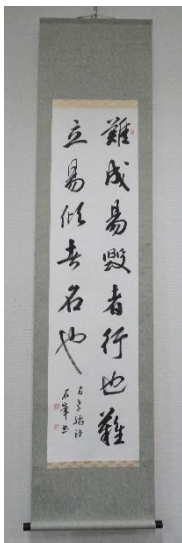 難成易毀者行也難
立易傾者名也
石峯書